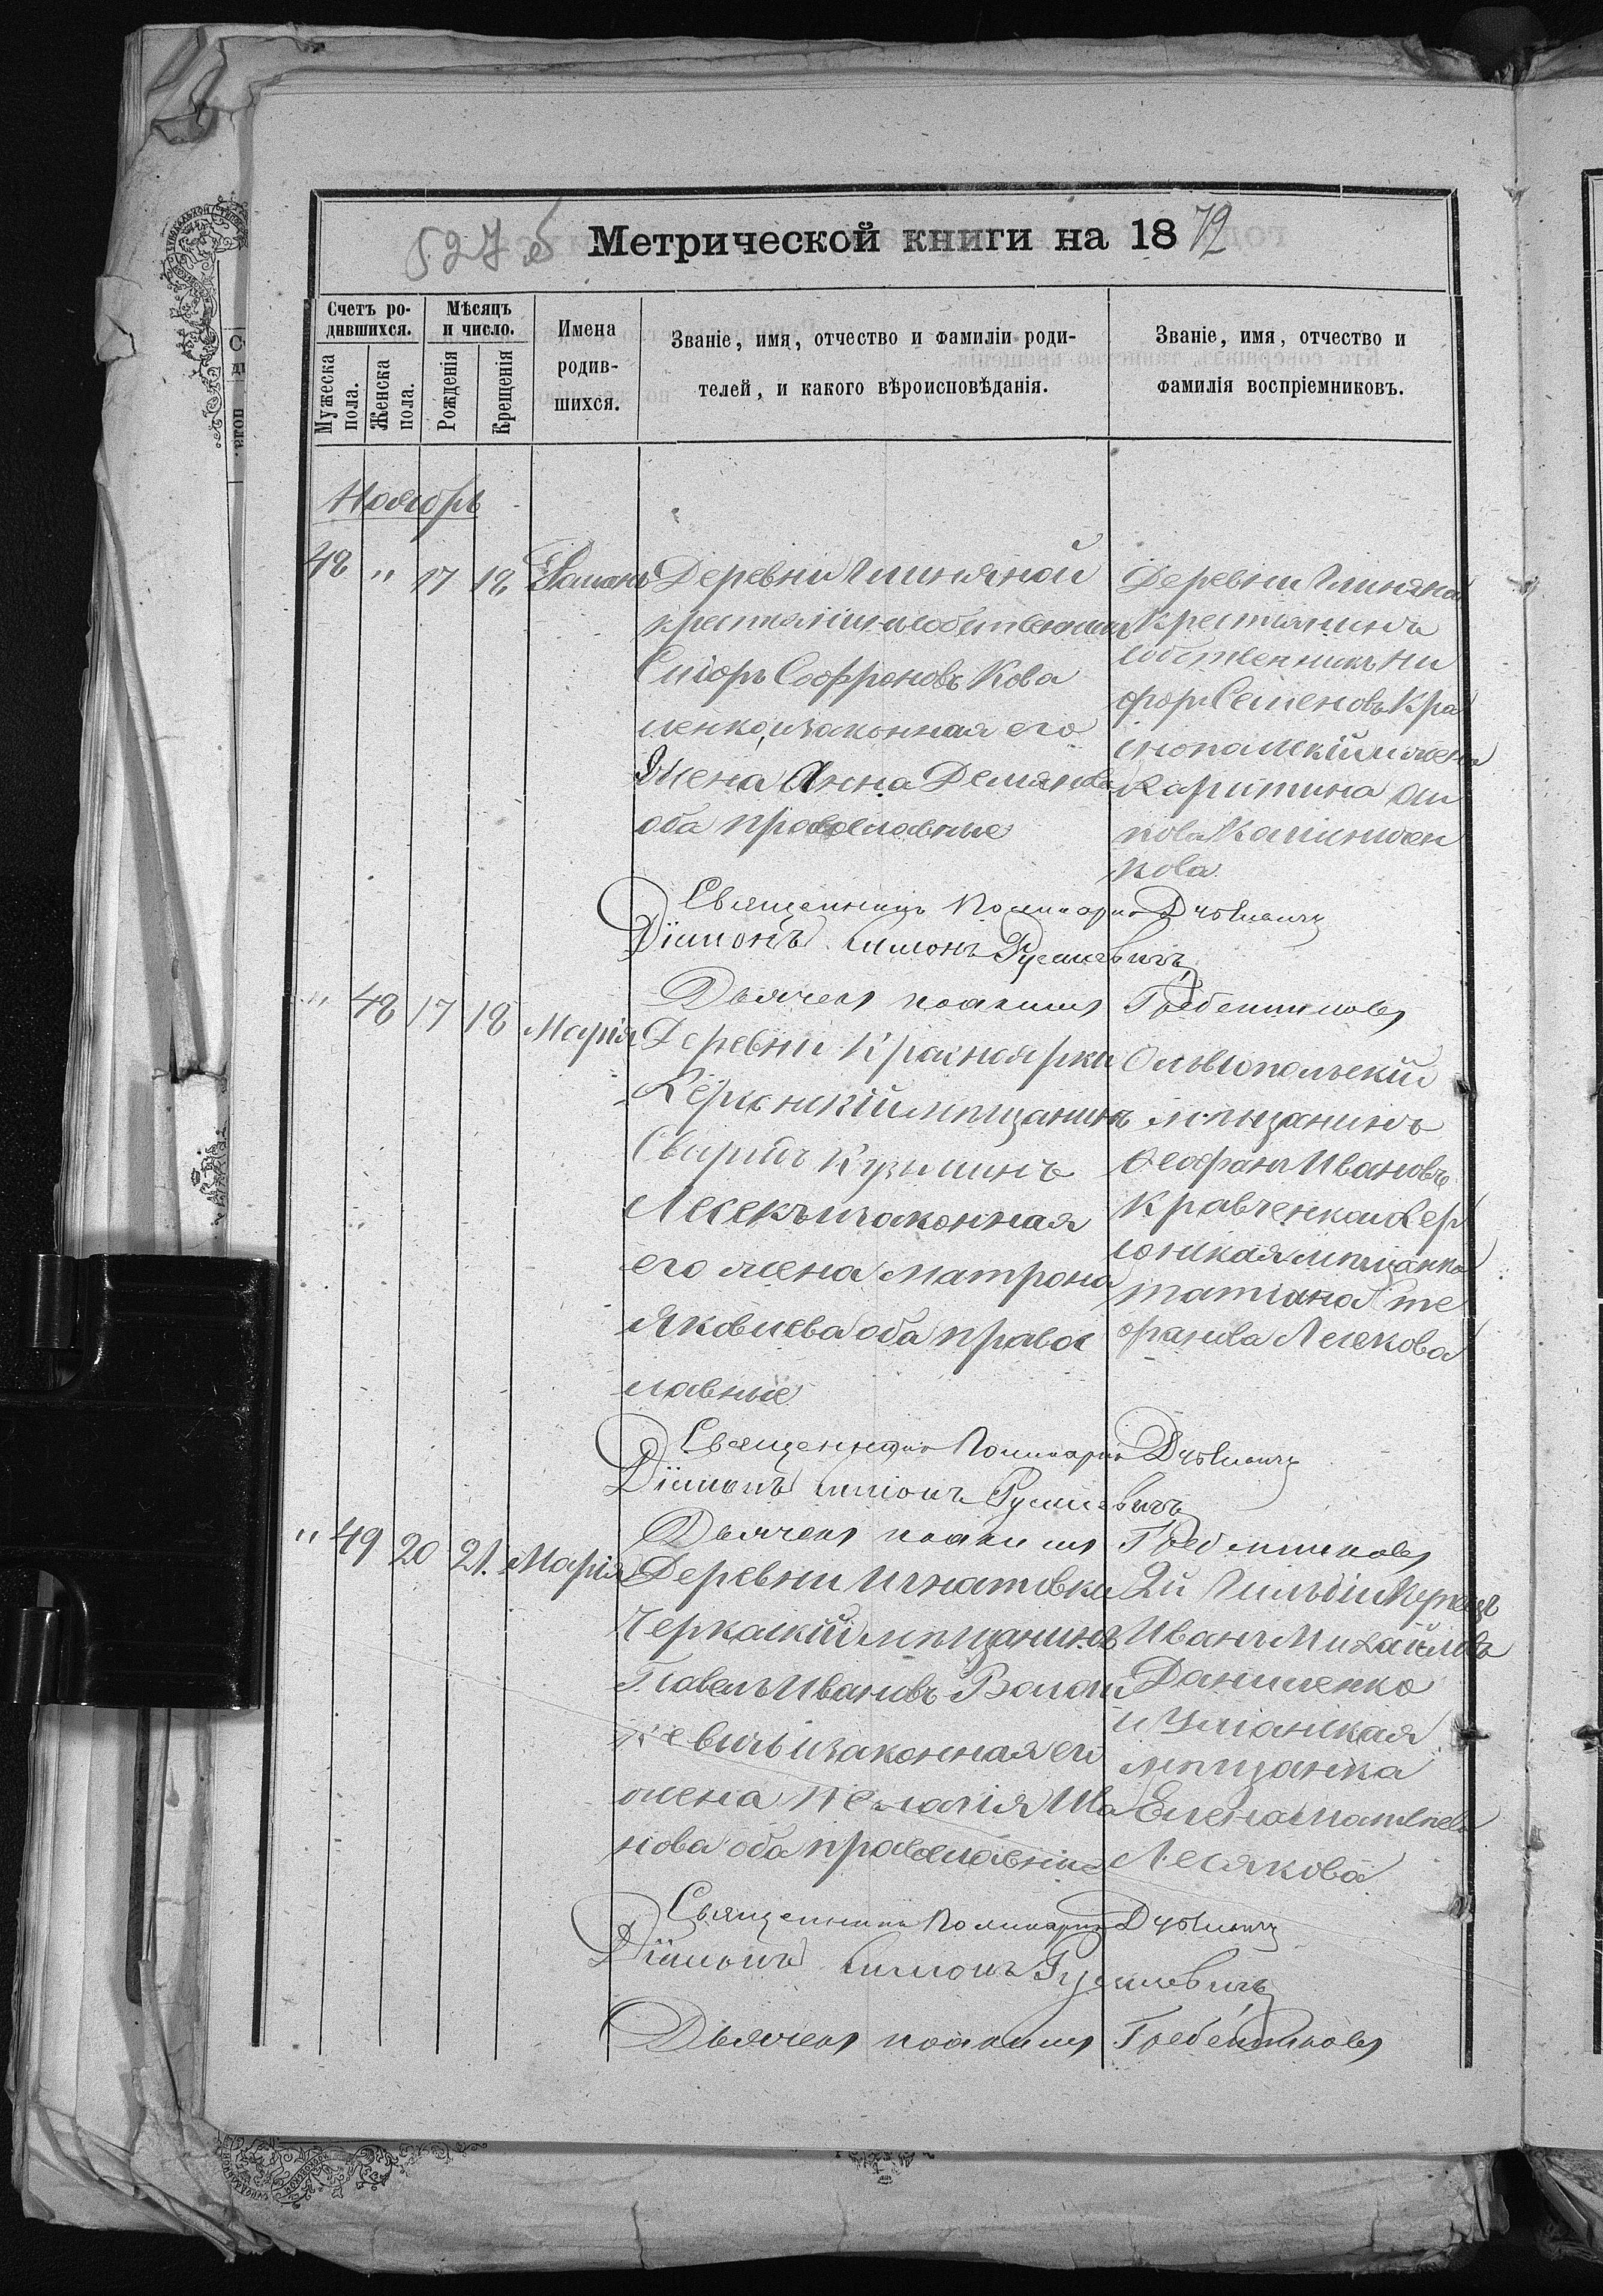 527 об
Метрической книги на 1872
Счетъ ро-
дившихся.
Мужеска пола.
Женска пола.
Мѣсяцъ
и число.
Рожденія
Крещенія
Имена
родив-
шихся.
Званіе, имя, отчество и фамиліи роди-
телей, и какого вѣроисповѣданія.
Званіе, имя, отчество и
фамилія воспріемниковъ.
Ноябрь
48 " 17 18
Деревни Глиняной
крестьянинъ собственникъ
Софроновъ Кова
ленко и законная его
жена Анна Демянова
оба православные
Деревни Глиняной
крестьянинъ
собственникъ Ни
форъ Семеновъ Кра
снопольскій и жена
Каритина
кова
Священникъ Поликарпъ
Діаконъ Симіонъ
Дьячекъ Іоакимъ Гребенниковъ
" 48 17 18 Марія
Деревни Красноярки
Херсонскій мѣщанинъ
Свиридъ Кузминъ
Лесекъ и законная
его жена Матрона
Яковлева оба правос
лавные
Ольвіопольскій
мѣщанинъ
Феофанъ Ивановъ
Кравченко и Хер
сонская мѣщанка
Татіана Сте
фанова Лесекова
Священникъ Поликарпъ
Діаконъ Симіонъ
Дьячекъ Іоакимъ Гребенниковъ
" 49 20 21. Марія
Деревни Игнатовки
Черкаскій мѣщанинъ
Павелъ Ивановъ Волот
кевичъ и законная его
жена Пелагія Ива
нова оба православные
2й Гильдіи Купецъ
Иванъ Михайловъ
Даниленко
и Уманская
мѣщанка
Елена Матвѣева
Лесякова
Священникъ Поликарпъ
Діаконъ Симіонъ
Дьячекъ Іоакимъ Гребенниковъ